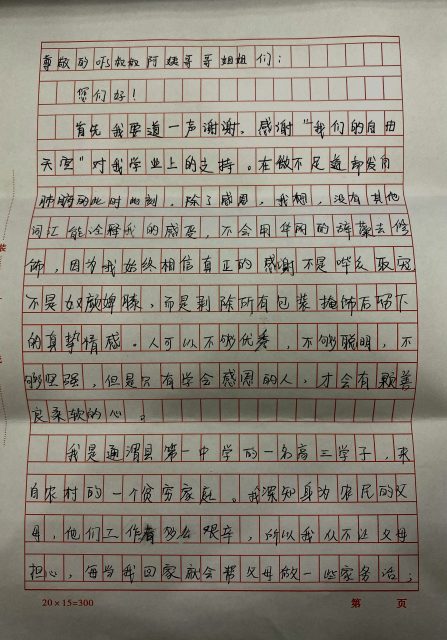 尊敬的叔叔阿姨哥哥姐姐们：
您们好！
首先我要道一声谢谢，感谢“我们的自由
天空”对我学业上的支持。在微不足道却发自
肺腑的此时此刻，除了感恩，我想，没有其他
词汇能诠释我的感受，不会用华丽的辞藻去修
饰，因为我始终相信真正的感谢不是哗众取宠
不是奴颜婢膝，而是剥除所有包装掩饰后留下
的真挚情感。人可以不够优秀，不够聪明，不
够坚强，但是只有学会感恩的人，才会有颗善
良柔软的心。
我是通渭县第一中学的一名高三学子，来
自农村的一个贫穷家庭。我深知身为农民的父
母，他们工作着多么艰辛，所以我从不让父母
担心，每当我回家就会帮父母做一些家务活；
20×15=300 第 页